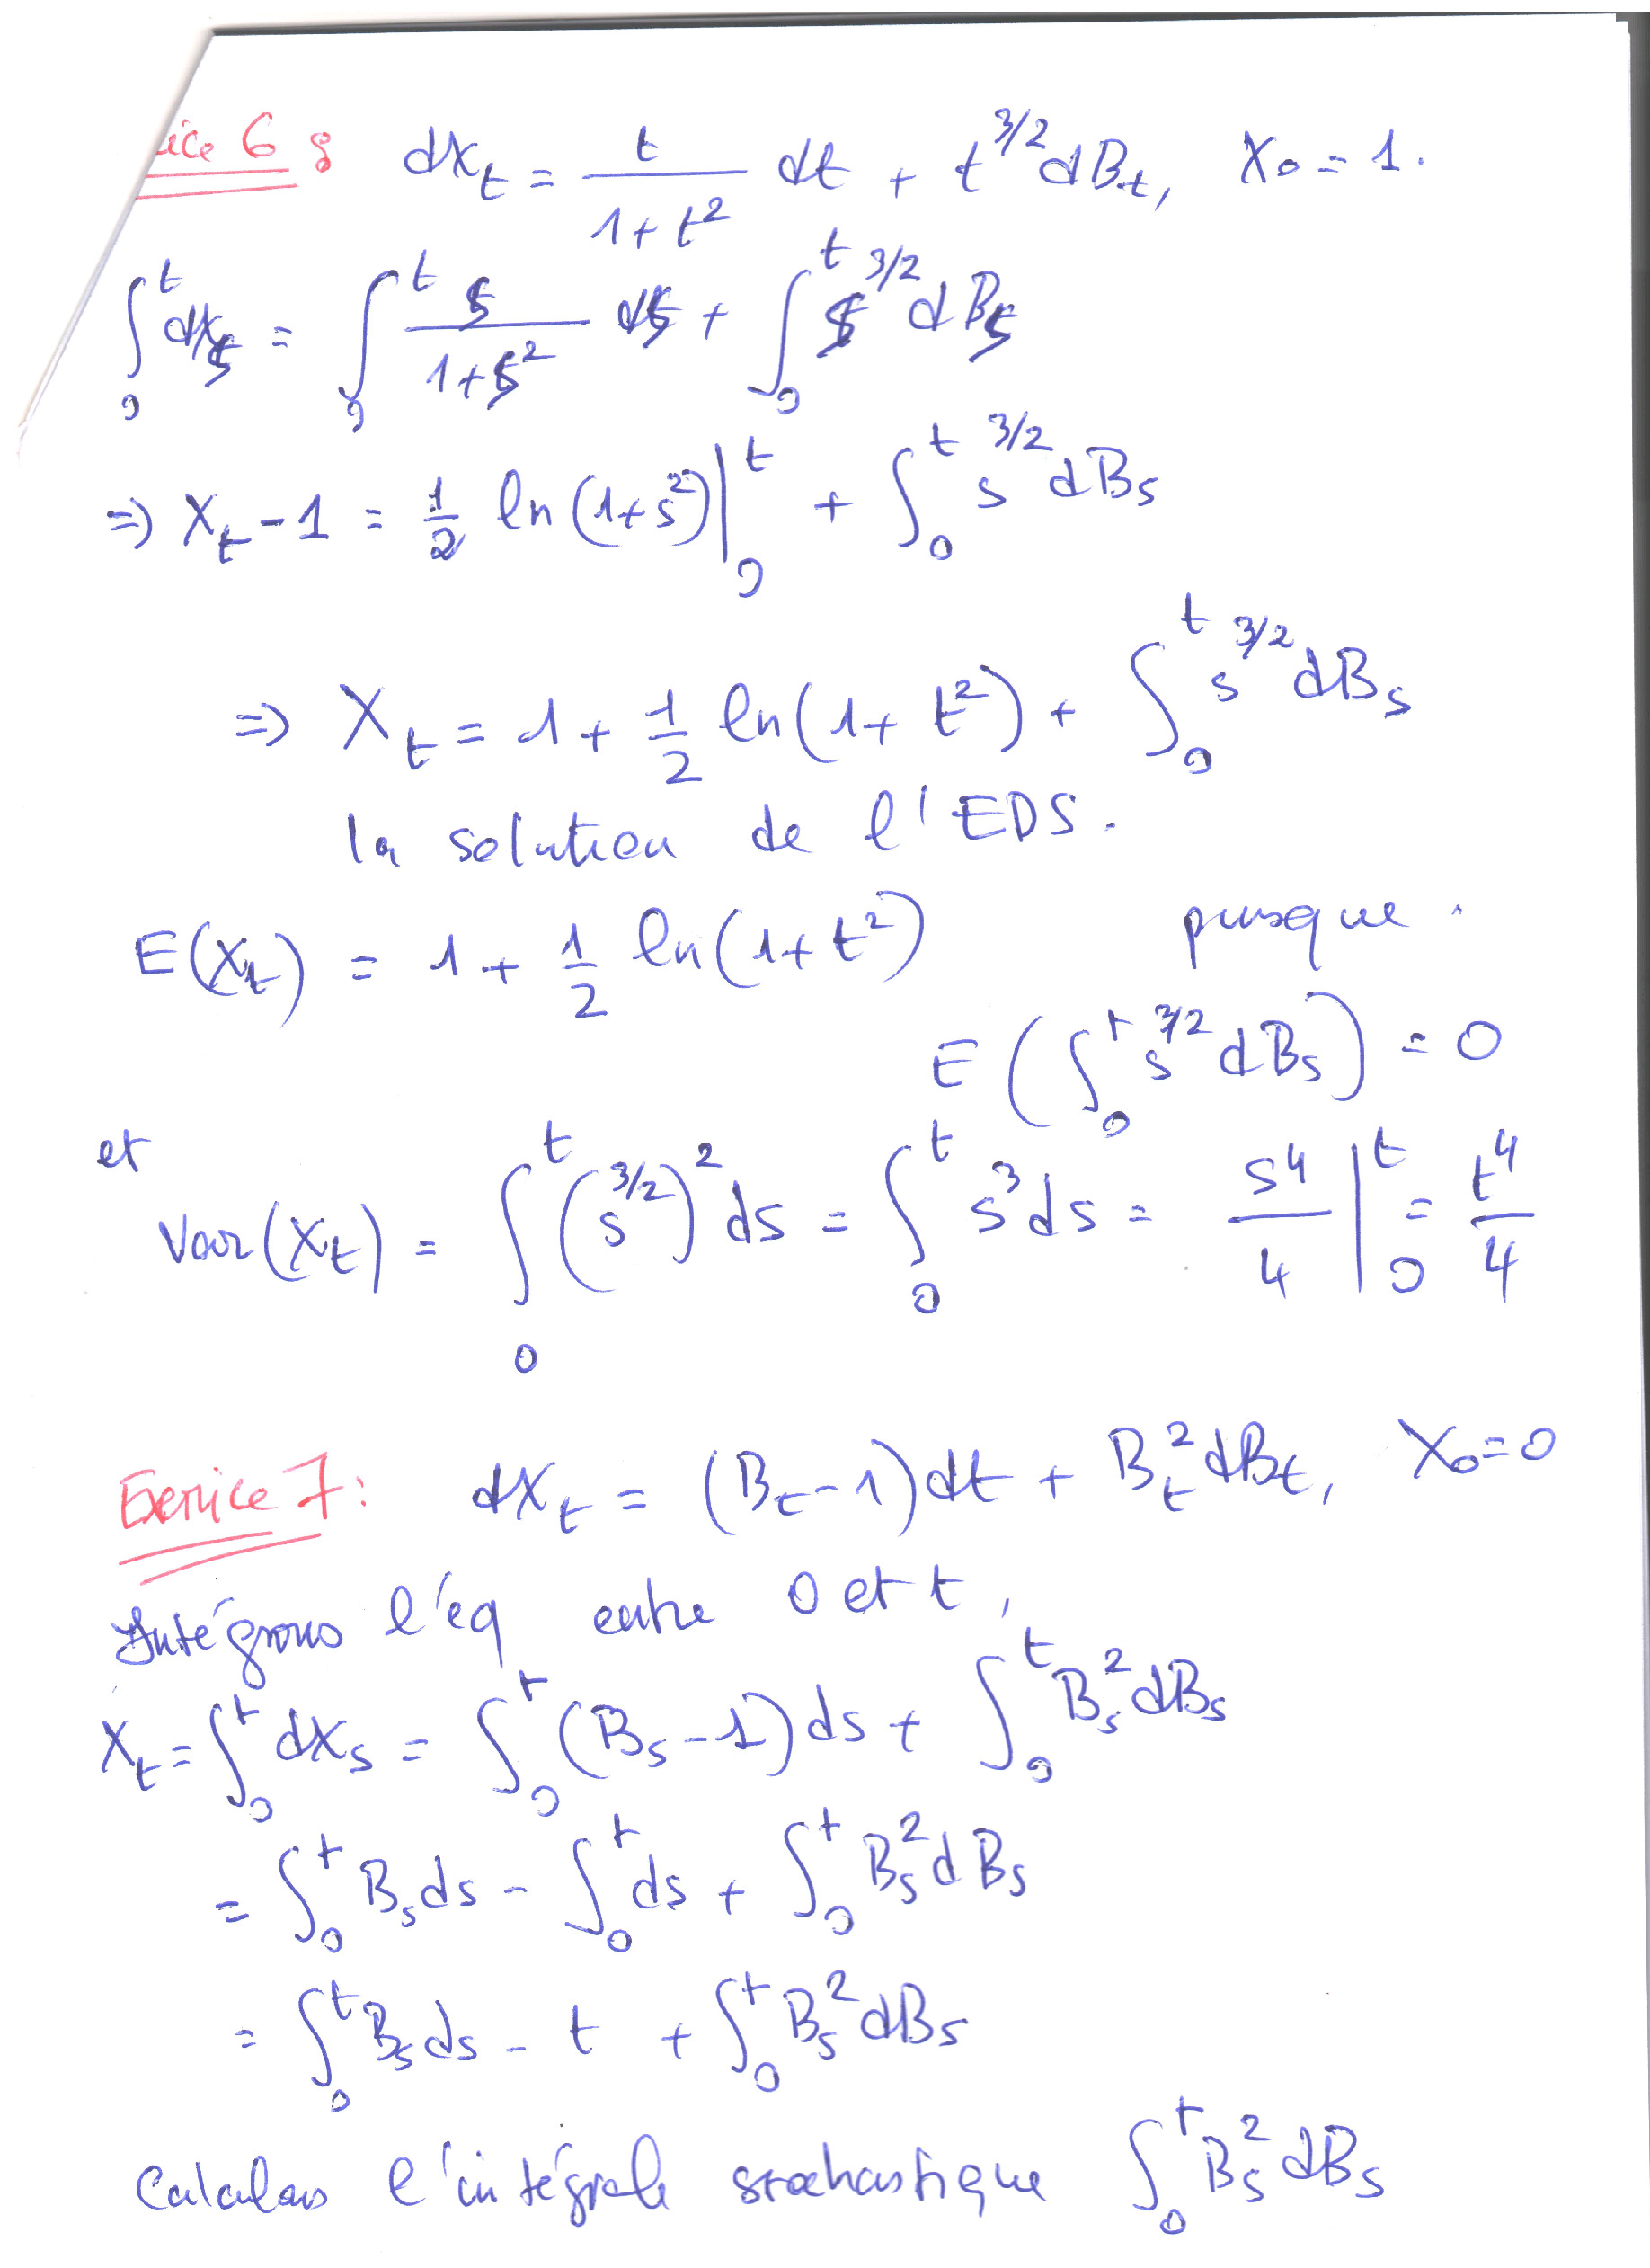 ice 6 : dX_t = t/(1+t²) dt + t^{3/2} dB_t, X_0 = 1.
∫_0^t dX_s = ∫_0^t s/(1+s²) ds + ∫_0^t s^{3/2} dB_s
⇒ X_t - 1 = 1/2 ln(1+s²)|_0^t + ∫_0^t s^{3/2} dB_s
⇒ X_t = 1 + 1/2 ln(1+t²) + ∫_0^t s^{3/2} dB_s
la solution de l'EDS.
E(X_t) = 1 + 1/2 ln(1+t²) puisque
E(∫_0^t s^{3/2} dB_s) = 0
et
Var(X_t) = ∫_0^t (s^{3/2})² ds = ∫_0^t s³ ds = s⁴/4 |_0^t = t⁴/4
Exercice 7 : dX_t = (B_t - 1) dt + B_t² dB_t, X_0 = 0
Intégrons l'éq entre 0 et t,
X_t = ∫_0^t dX_s = ∫_0^t (B_s - 1) ds + ∫_0^t B_s² dB_s
= ∫_0^t B_s ds - ∫_0^t ds + ∫_0^t B_s² dB_s
= ∫_0^t B_s ds - t + ∫_0^t B_s² dB_s
Calculons l'intégrale stochastique ∫_0^t B_s² dB_s